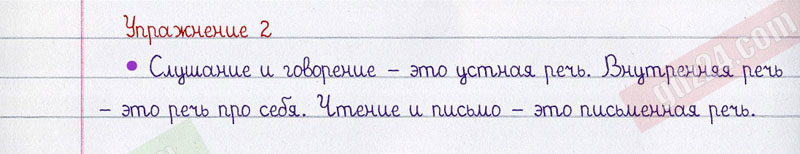 Упражнение 2
• Слушание и говорение – это устная речь. Внутренняя речь
– это речь про себя. Чтение и письмо – это письменная речь.
gdz24.com